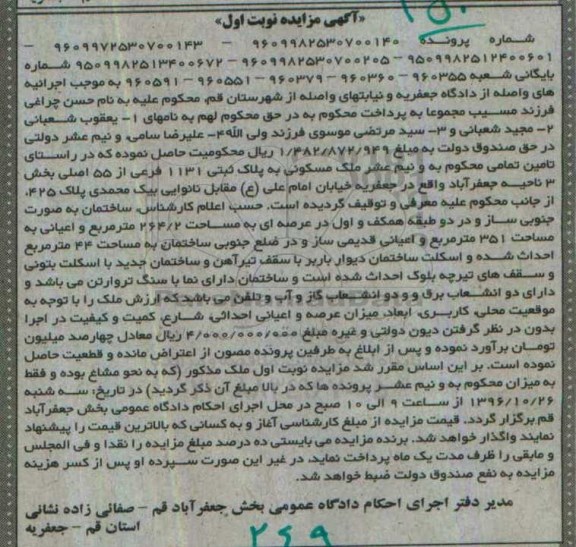 ۱۵۰
«آگهی مزایده نوبت اول»
شماره پرونده ۹۶۰۹۹۸۲۵۳۰۷۰۰۱۴۰ – ۹۶۰۹۹۷۲۵۳۰۷۰۰۱۴۳ –
۹۵۰۹۹۸۲۵۱۲۴۰۰۶۰۱ – ۹۶۰۹۹۸۲۵۳۰۷۰۰۲۰۵ – ۹۵۰۹۹۸۲۵۱۳۴۰۰۶۷۲ شماره
بایگانی شعبه ۹۶۰۳۵۵ – ۹۶۰۳۶۰ – ۹۶۰۳۷۹ – ۹۶۰۵۵۱ – ۹۶۰۵۹۱ به موجب اجرائیه
های واصله از دادگاه جعفریه و نیابتهای واصله از شهرستان قم، محکوم علیه به نام حسن چراغی
فرزند مسیب مجموعا به پرداخت محکوم به در حق محکوم لهم به نامهای ۱– یعقوب شعبانی
۲– مجید شعبانی و ۳– سید مرتضی موسوی فرزند ولی الله ۴– علیرضا سامی، و نیم عشر دولتی
در حق صندوق دولت به مبلغ ۱/۴۸۲/۸۷۲/۹۴۹ ریال محکومیت حاصل نموده که در راستای
تامین تمامی محکوم به و نیم عشر ملک مسکونی به پلاک ثبتی ۱۱۳۱ فرعی از ۵۵ اصلی بخش
۳ ناحیه جعفرآباد واقع در جعفریه خیابان امام علی (ع) مقابل نانوایی بیک محمدی پلاک ۴۲۵،
از جانب محکوم علیه معرفی و توقیف گردیده است. حسب اعلام کارشناس، ساختمان به صورت
جنوبی ساز و در دو طبقه همکف و اول در عرصه ای به مساحت ۲۶۴/۲ مترمربع و اعیانی به
مساحت ۳۵۱ مترمربع و اعیانی قدیمی ساز و در ضلع جنوبی ساختمان به مساحت ۴۴ مترمربع
احداث شده و اسکلت ساختمان دیوار باربر با سقف تیرآهن و ساختمان جدید با اسکلت بتونی
و سقف های تیرچه بلوک احداث شده است و ساختمان دارای نما با سنگ تروارتن می باشد و
دارای دو انشعاب برق و و دو انشعاب گاز و آب و تلفن می باشد که ارزش ملک را با توجه به
موقعیت محلی، کاربری، ابعاد، میزان عرصه و اعیانی احداثی، شارع، کمیت و کیفیت در اجرا
بدون در نظر گرفتن دیون دولتی و غیره مبلغ ۴/۰۰۰/۰۰۰/۰۰۰ ریال معادل چهارصد میلیون
تومان برآورد نموده و پس از ابلاغ به طرفین پرونده مصون از اعتراض مانده و قطعیت حاصل
نموده است. بر این اساس مقرر شد مزایده نوبت اول ملک مذکور (که به نحو مشاع بوده و فقط
به میزان محکوم به و نیم عشر پرونده ها که در بالا مبلغ آن ذکر گردید) در تاریخ: سه شنبه
۱۳۹۶/۱۰/۲۶ از ساعت ۹ الی ۱۰ صبح در محل اجرای احکام دادگاه عمومی بخش جعفرآباد
قم برگزار گردد. قیمت مزایده از مبلغ کارشناسی آغاز و به کسانی که بالاترین قیمت را پیشنهاد
نمایند واگذار خواهد شد. برنده مزایده می بایستی ده درصد مبلغ مزایده را نقدا و فی المجلس
و مابقی را ظرف مدت یک ماه پرداخت نماید، در غیر این صورت سپرده او پس از کسر هزینه
مزایده به نفع صندوق دولت ضبط خواهد شد.
مدیر دفتر اجرای احکام دادگاه عمومی بخش جعفرآباد قم – صفائی زاده نشانی
استان قم – جعفریه
۲۶۹